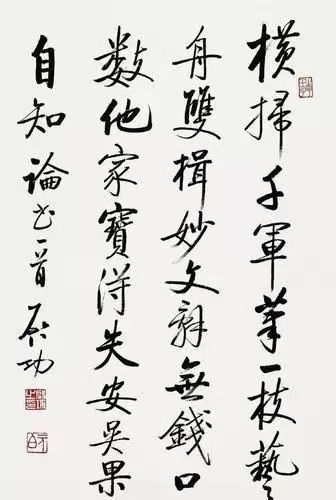 橫掃千軍筆一枝藝
舟雙楫妙文辭無錢口
数他家寶得失安吳果
自知 論书一首 启功